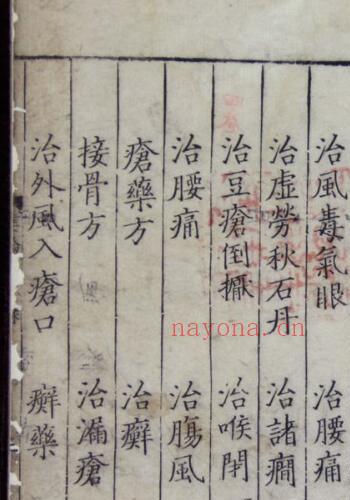 治風毒氣眼 治腰痛
治虛勞秋石丹 治諸癇
治豆瘡倒攧 治喉閉
治腰痛 治腸風
瘡藥方 治癬
接骨方 治漏瘡
治外風入瘡口 癬藥
nayona.cn